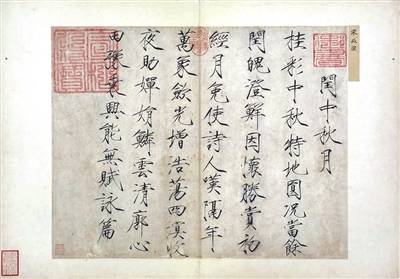 宋徽宗
閏中秋月
桂彩中秋特地圓況當餘
閏魄澄鮮因懷勝賞初
經月免使詩人嘆隔年
萬象斂光增浩蕩四溟收
夜助嬋娟鱗雲清廓心
田豫乘興能無賦詠篇